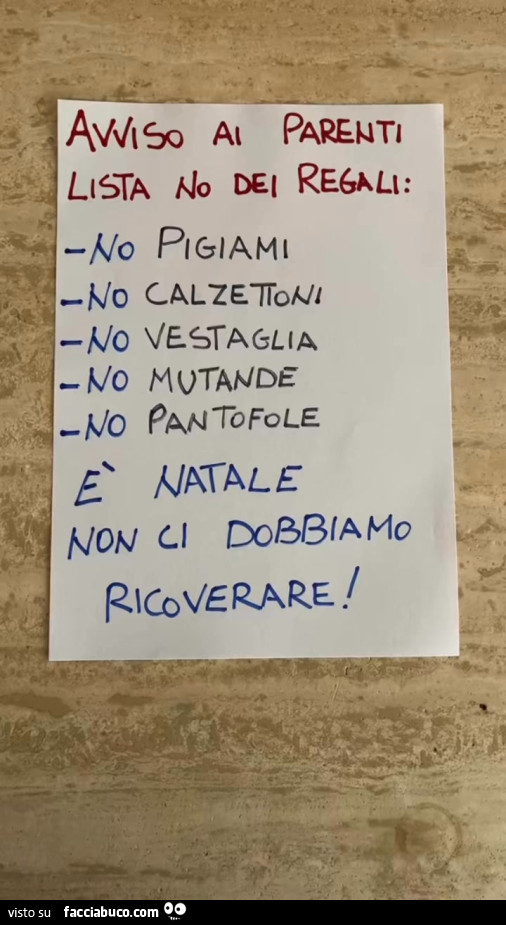 AVVISO AI PARENTI
LISTA NO DEI REGALI:
-NO PIGIAMI
-NO CALZETTONI
-NO VESTAGLIA
-NO MUTANDE
-NO PANTOFOLE
È NATALE
NON CI DOBBIAMO
RICOVERARE!
visto su facciabuco.com